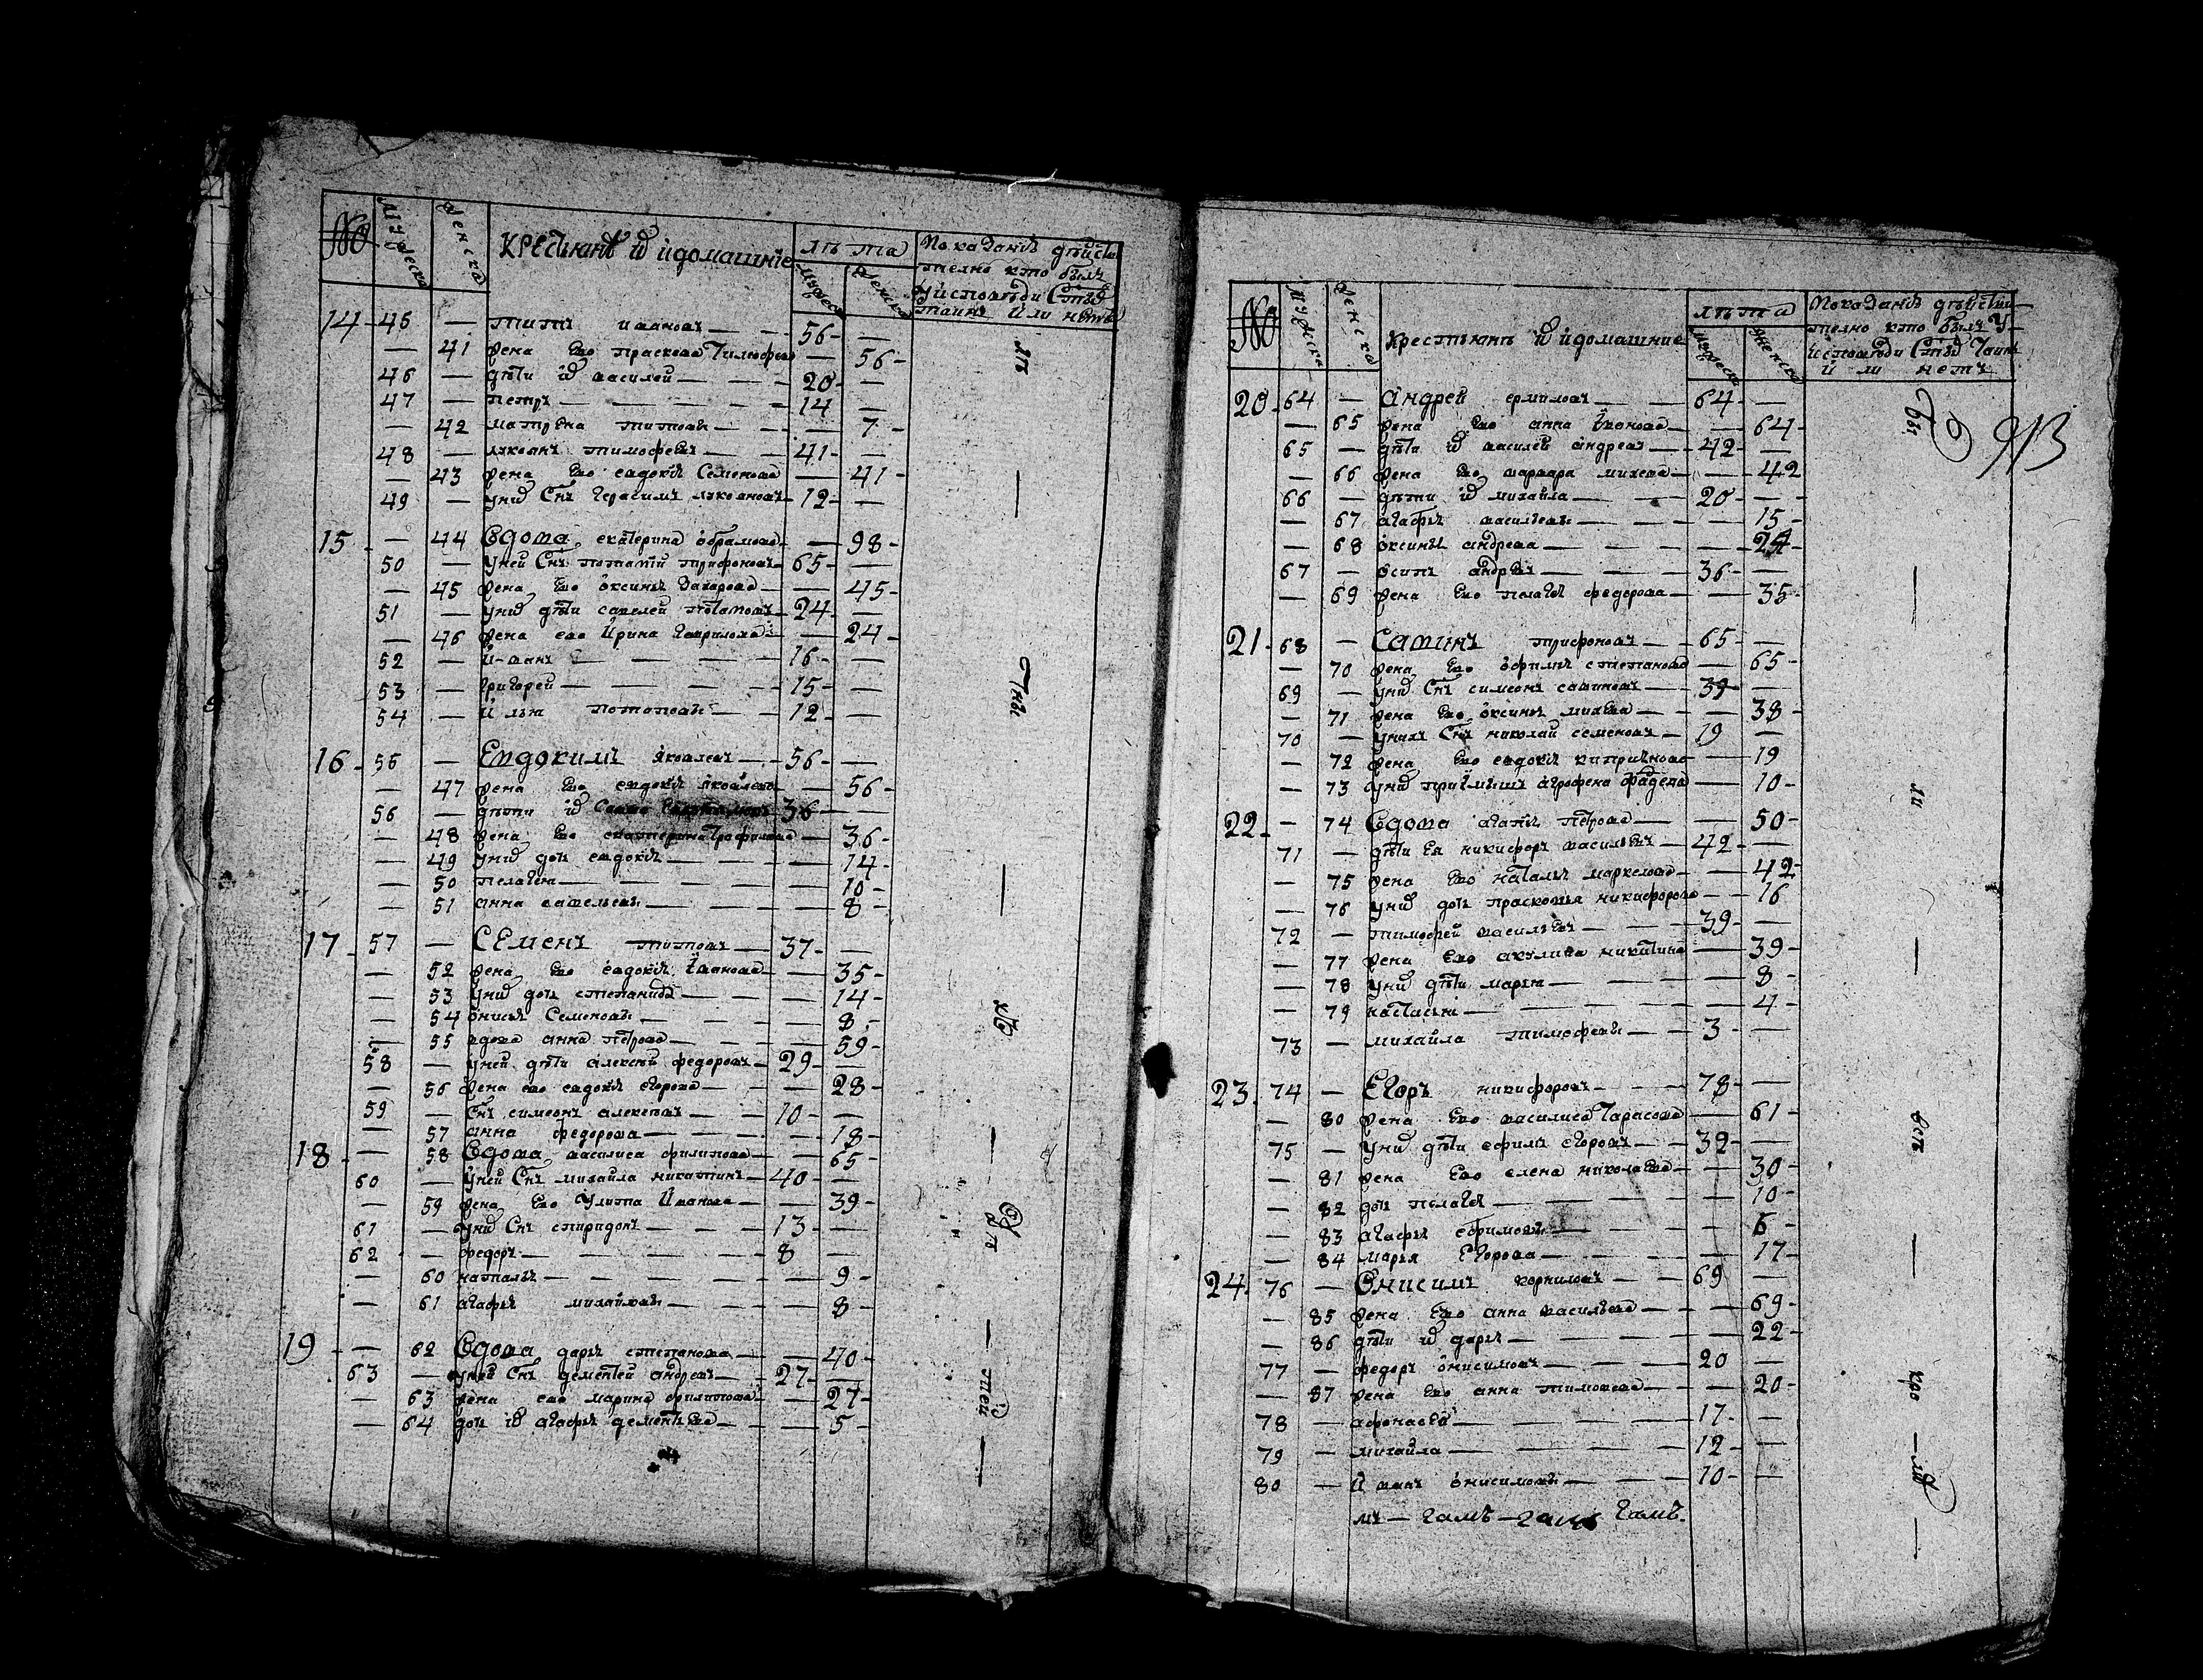 № мужеска женска крестьянѣ и ихъ домашние лѣта мужеска женска показаніѣ дѣйстви
телно кто былъ
у исповѣди с҃тыхъ
таинъ или нетъ
14 45 — титъ ивановъ — 56 —
— 41 жена ево праскова тимофѣева — 56
46 — дѣти ихъ василей — 20 —
47 — петръ — 14 —
— 42 матрена титовы — 7
48 — лукоянъ тимофѣевъ — 41 —
— 43 жена ево евдокіѣ семенова — 41
49 — у нихъ сн҃ъ герасимъ лукояновъ 12 —
15 — 44 вдова екатерина обрамова — 98
50 — у ней сн҃ъ потапій трифоновъ 65 —
— 45 жена ево оксинья захарова — 45
51 — у нихъ дѣти савелей потаповъ 24 —
— 46 жена ево ирина гаврилова — 24
52 — иванъ — 16 —
53 — григорей — 15 —
54 — илья потаповы — 12 —
16 55 — Евдокимъ яковлевъ — 56 —
— 47 жена ево евдокіѣ яковлева — 56
56 — дѣти ихъ 36 —
— 48 жена ево екатерина трофимова — 36
— 49 у нихъ дочь евдокіѣ — 14
— 50 пелагея — 10
— 51 анна савельевы — 8
17 57 — Семенъ титовъ — 37 —
— 52 жена ево евдокіѣ иванова — 35
— 53 у нихъ дочь степанида — 14
— 54 онисья семеновы — 8
— 55 вдова анна петрова — 59
58 — у ней дѣти алексей федоровъ 29 —
— 56 жена ево евдокіѣ егорова — 28
59 — сн҃ъ симеонъ алексеевъ — 10 —
— 57 анна федорова — 18
18 — 58 вдова василиса филипова — 65
60 — у ней сн҃ъ михайла никитинъ 40 —
— 59 жена ево улита иванова — 39
61 — у нихъ сн҃ъ спиридонъ — 13 —
62 — федоръ — 8 —
— 60 наталья — 9
— 61 агафья михайловы — 8
19 — 62 вдова дарья степанова — 40
63 — у ней сн҃ъ дементей андреевъ 27 —
— 63 жена ево марина филипова — 27
— 64 дочь ихъ агафья дементьева — 5
№ мужеска женска крестьянѣ и ихъ домашние лѣта мужеска женска показаніѣ дѣйстви
телно кто былъ у
исповѣди с҃тыхъ таинъ
или нетъ
913
20 64 — андрей ермиловъ — 64 —
— 65 жена ево анна иванова — 64
65 — дѣти ихъ василей андреевъ 42 —
— 66 жена ево варвара михеева — 42
66 — дѣти ихъ михайла — 20 —
— 67 агафья васильевы — 15
— 68 оксинья андреева — 24
67 — осипъ андреевъ — 36 —
— 69 жена ево пелагея федорова — 35
21 68 — Савинъ трифоновъ — 65 —
— 70 жена ево офимья степанова — 65
69 — у нихъ сн҃ъ симеонъ савиновъ 39 —
— 71 жена ево оксинья михеева — 38
70 — у нихъ сн҃ъ николай семеновъ 19 —
— 72 жена ево евдокіѣ киприянова — 19
— 73 у нихъ приемышъ аграфена фадеева — 10
22 — 74 вдова агафья петрова — 50
71 — дѣти ея никифоръ васильевъ 42 —
— 75 жена ево наталья маркелова — 42
— 76 у нихъ дочь прасковья никифорова — 16
72 — тимофей васильевъ — 39 —
— 77 жена ево акулина никитина — 39
— 78 у нихъ дѣти марья — 8
— 79 настасья — 4
73 — михайла тимофеевы — 3 —
23 74 — Егоръ никифоровъ — 78 —
— 80 жена ево василиса тарасова — 61
75 — у нихъ дѣти ефимъ егоровъ 32 —
— 81 жена ево елена николаева — 30
— 82 дочь пелагея — 10
— 83 агафья ефимовы — 6
— 84 марья егорова — 17
24 76 — Онисимъ корниловъ — 69 —
— 85 жена ево анна васильева — 69
— 86 дѣти ихъ дарья — 22
77 — федоръ онисимовъ — 20 —
— 87 жена ево анна тимофеева — 20
78 — афонасей — 17 —
79 — михайла — 12 —
80 — иванъ онисимовы — 10 —